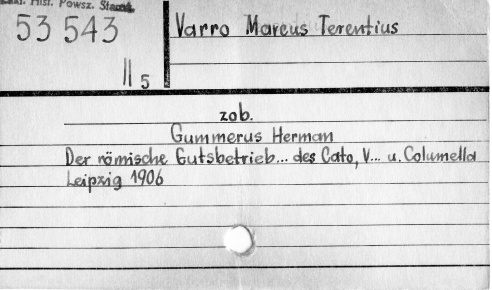 Hist. Powsz. Staroż.
53 543
II 5
Varro Marcus Terentius
zob.
Gummerus Herman
Der römische Gutsbetrieb... des Cato, V... u. Columella
Leipzig 1906